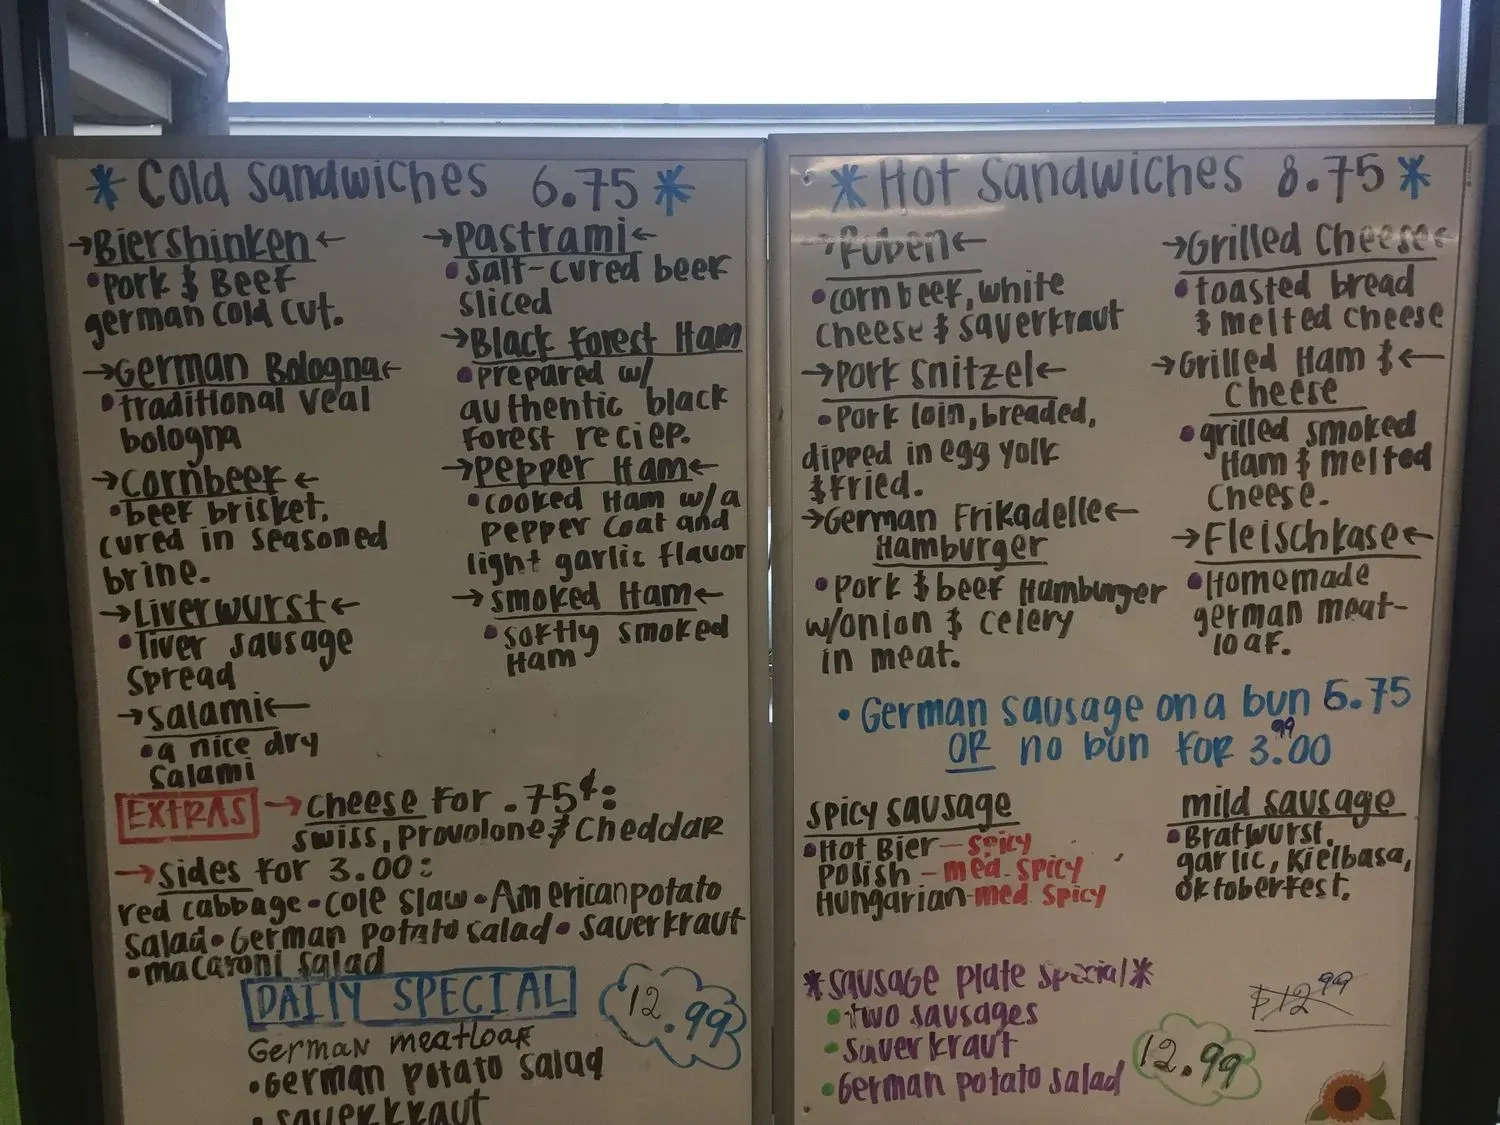 * Cold Sandwiches 6.75 *
→Biershinken←
•Pork & Beef
german cold cut.
→German Bologna←
•traditional veal
bologna
→Cornbeef←
•beef brisket.
cured in seasoned
brine.
→Liverwurst←
•liver sausage
spread
→Salami←
•a nice dry
salami
→Pastrami←
•salt-cured beef
sliced
→Black Forest Ham
•prepared w/
authentic black
forest reciep.
→Pepper Ham←
•cooked Ham w/a
pepper coat and
light garlic flavor
→Smoked Ham←
•softly smoked
Ham
EXTRAS →Cheese for .75¢:
swiss, provolone & Cheddar
→Sides for 3.00:
red cabbage•Cole slaw•American potato
salad•German potato salad•Sauerkraut
•macaroni salad
DAILY SPECIAL
12.99
German meatloaf
•German potato salad
•sauerkraut
* Hot Sandwiches 8.75 *
→Ruben←
•corn beef, white
cheese & sauerkraut
→Pork Snitzel←
•Pork loin, breaded,
dipped in egg yolk
& fried.
→German Frikadelle←
Hamburger
•Pork & beef Hamburger
w/onion & celery
in meat.
→Grilled Cheese←
•toasted bread
& melted cheese
→Grilled Ham &←
Cheese
•grilled smoked
Ham & melted
Cheese.
→Fleischkase←
•Homemade
german meat-
loaf.
•German sausage on a bun 6.75
OR no bun for 3.00
99
Spicy Sausage
•Hot Bier—spicy
Polish—med-spicy
Hungarian-med spicy
mild sausage
•Bratwurst,
garlic, kielbasa,
oktoberfest.
*Sausage plate special*
•two sausages
•sauerkraut
•German potato salad
$12.99
12.99